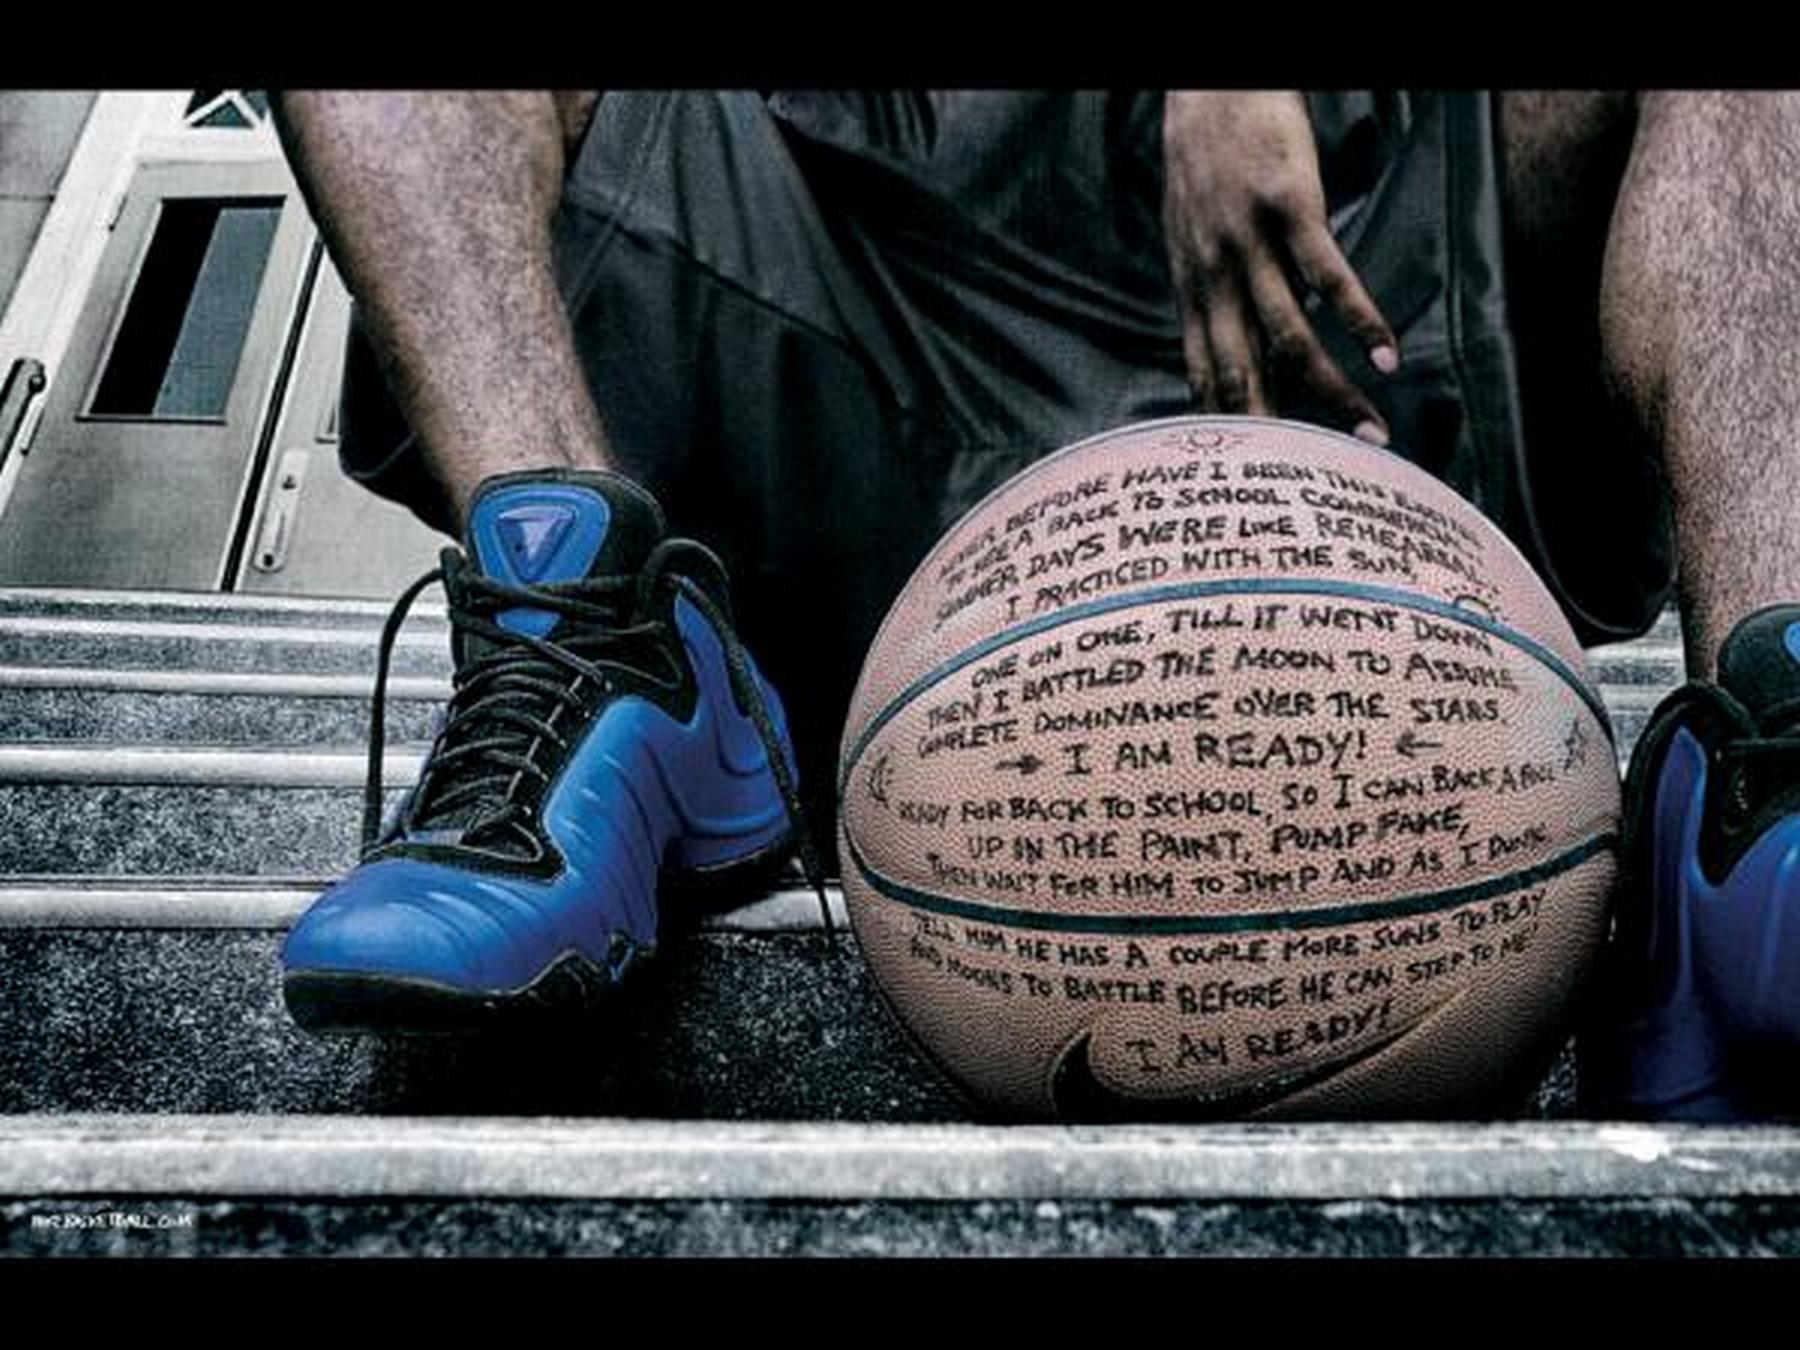 BEFORE HAVE I BEEN THIS
TO SEE A BACK TO SCHOOL COMMERCIAL
SUMMER DAYS WERE LIKE REHEARSAL
I PRACTICED WITH THE SUN,
ONE ON ONE, TILL IT WENT DOWN
THEN I BATTLED THE MOON TO ASSUME
COMPLETE DOMINANCE OVER THE STARS.
→ I AM READY! ←
READY FOR BACK TO SCHOOL, SO I CAN BACK A FOOL
UP IN THE PAINT, PUMP FAKE,
THEN WAIT FOR HIM TO JUMP AND AS I DUNK
TELL HIM HE HAS A COUPLE MORE SUNS TO PLAY
AND MOONS TO BATTLE BEFORE HE CAN STEP TO ME!
I AM READY!